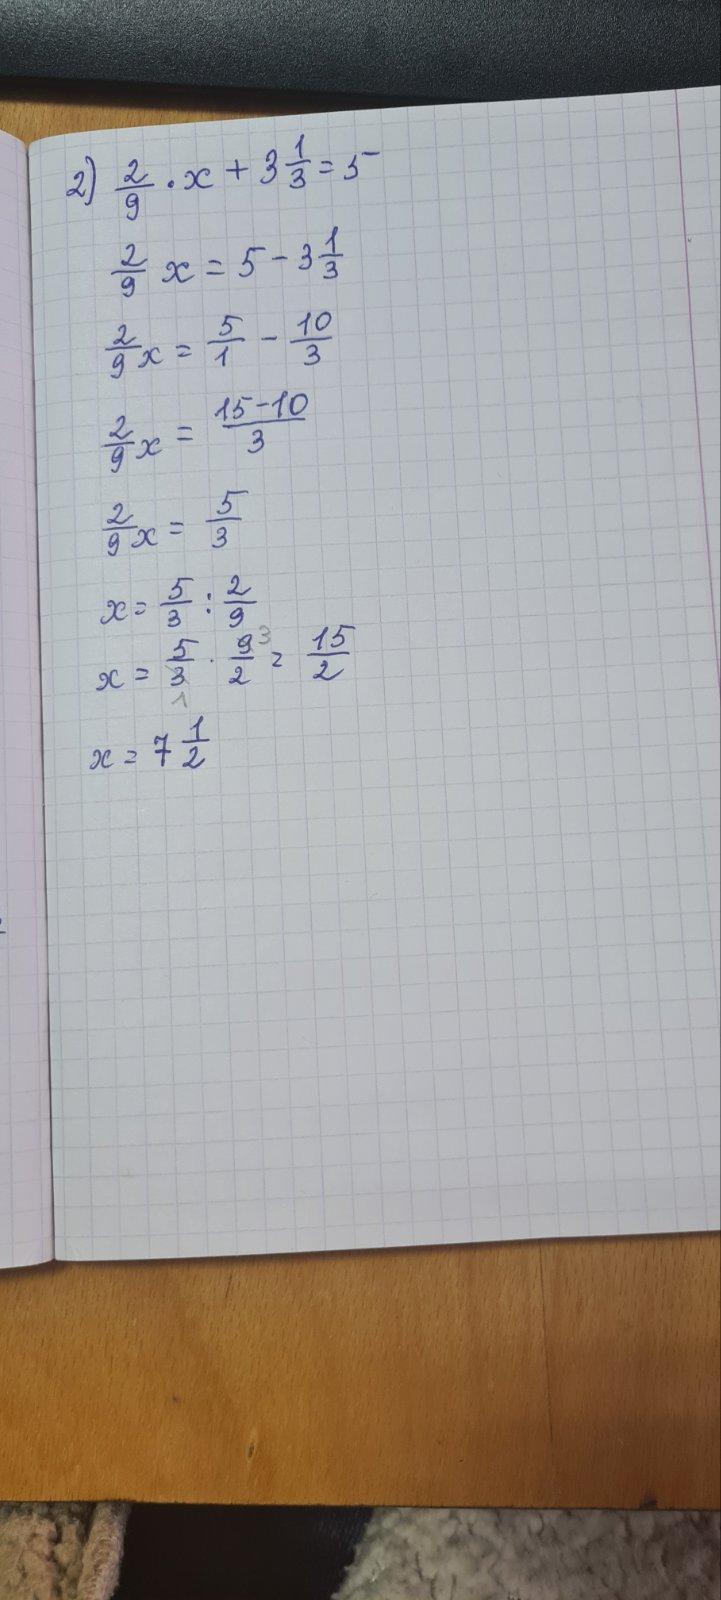 2) 2/9 · x + 3 1/3 = 5
2/9 x = 5 - 3 1/3
2/9 x = 5/1 - 10/3
2/9 x = 15-10/3
2/9 x = 5/3
x = 5/3 : 2/9
x = 5/3 1 · 9 3/2 = 15/2
x = 7 1/2